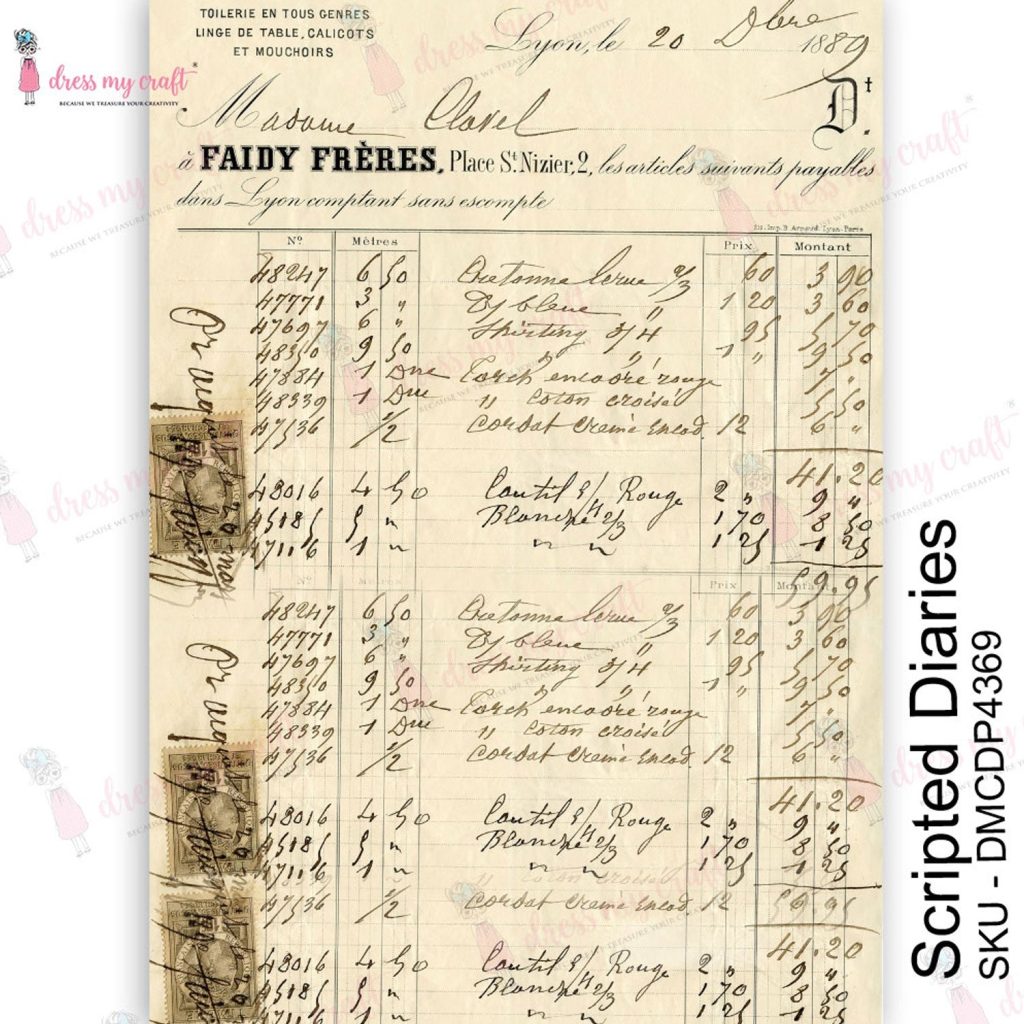 TOILERIE EN TOUS GENRES
LINGE DE TABLE, CALICOTS
ET MOUCHOIRS
Lyon, le 20 Dbre 1889
dress my craft
BECAUSE WE TREASURE YOUR CREATIVITY
Dt.
Madame Clavel
à FAIDY FRÈRES, Place St. Nizier, 2, les articles suivants payables
dans Lyon comptant sans escompte
No Mètres Prix Montant
48247 6 50 Cretonne 2/3 60 3 90
47771 3 " Dj bleue " 1 20 3 60
47697 6 " Skirting 3/4 95 5 70
48350 9 50 " " 1 " 9 50
47884 1 Dne Torch encadré rouge 7 "
48339 1 Dne " coton croisé 5 50
47536 1/2 Cordat Crème Encad. 12 6 "
41.20
48016 4 50 Coutil Rouge 2 " 9 "
45185 5 " Blanche 2/3 1 70 8 50
47116 1 " " " 1 25 1 25
59.95
No Mètres Prix Montant
48247 6 50 Cretonne 2/3 60 3 90
47771 3 " Dj bleue " 1 20 3 60
47697 6 " Skirting 3/4 95 5 70
48350 9 50 " " 1 " 9 50
47884 1 Dne Torch encadré rouge 7 "
48339 1 Dne " coton croisé 5 50
47536 1/2 Cordat Crème Encad. 12 6 "
41.20
48016 4 50 Coutil Rouge 2 " 9 "
45185 5 " Blanche 2/3 1 70 8 50
47116 1 " " " 1 25 1 25
47536 1/2 Cordat Crème Encad. 12 59.95
41.20
48016 4 50 Coutil Rouge 2 " 9 "
45185 5 " Blanche 2/3 1 70 8 50
47116 1 " " " 1 25 1 25
Scripted Diaries
SKU - DMCDP4369